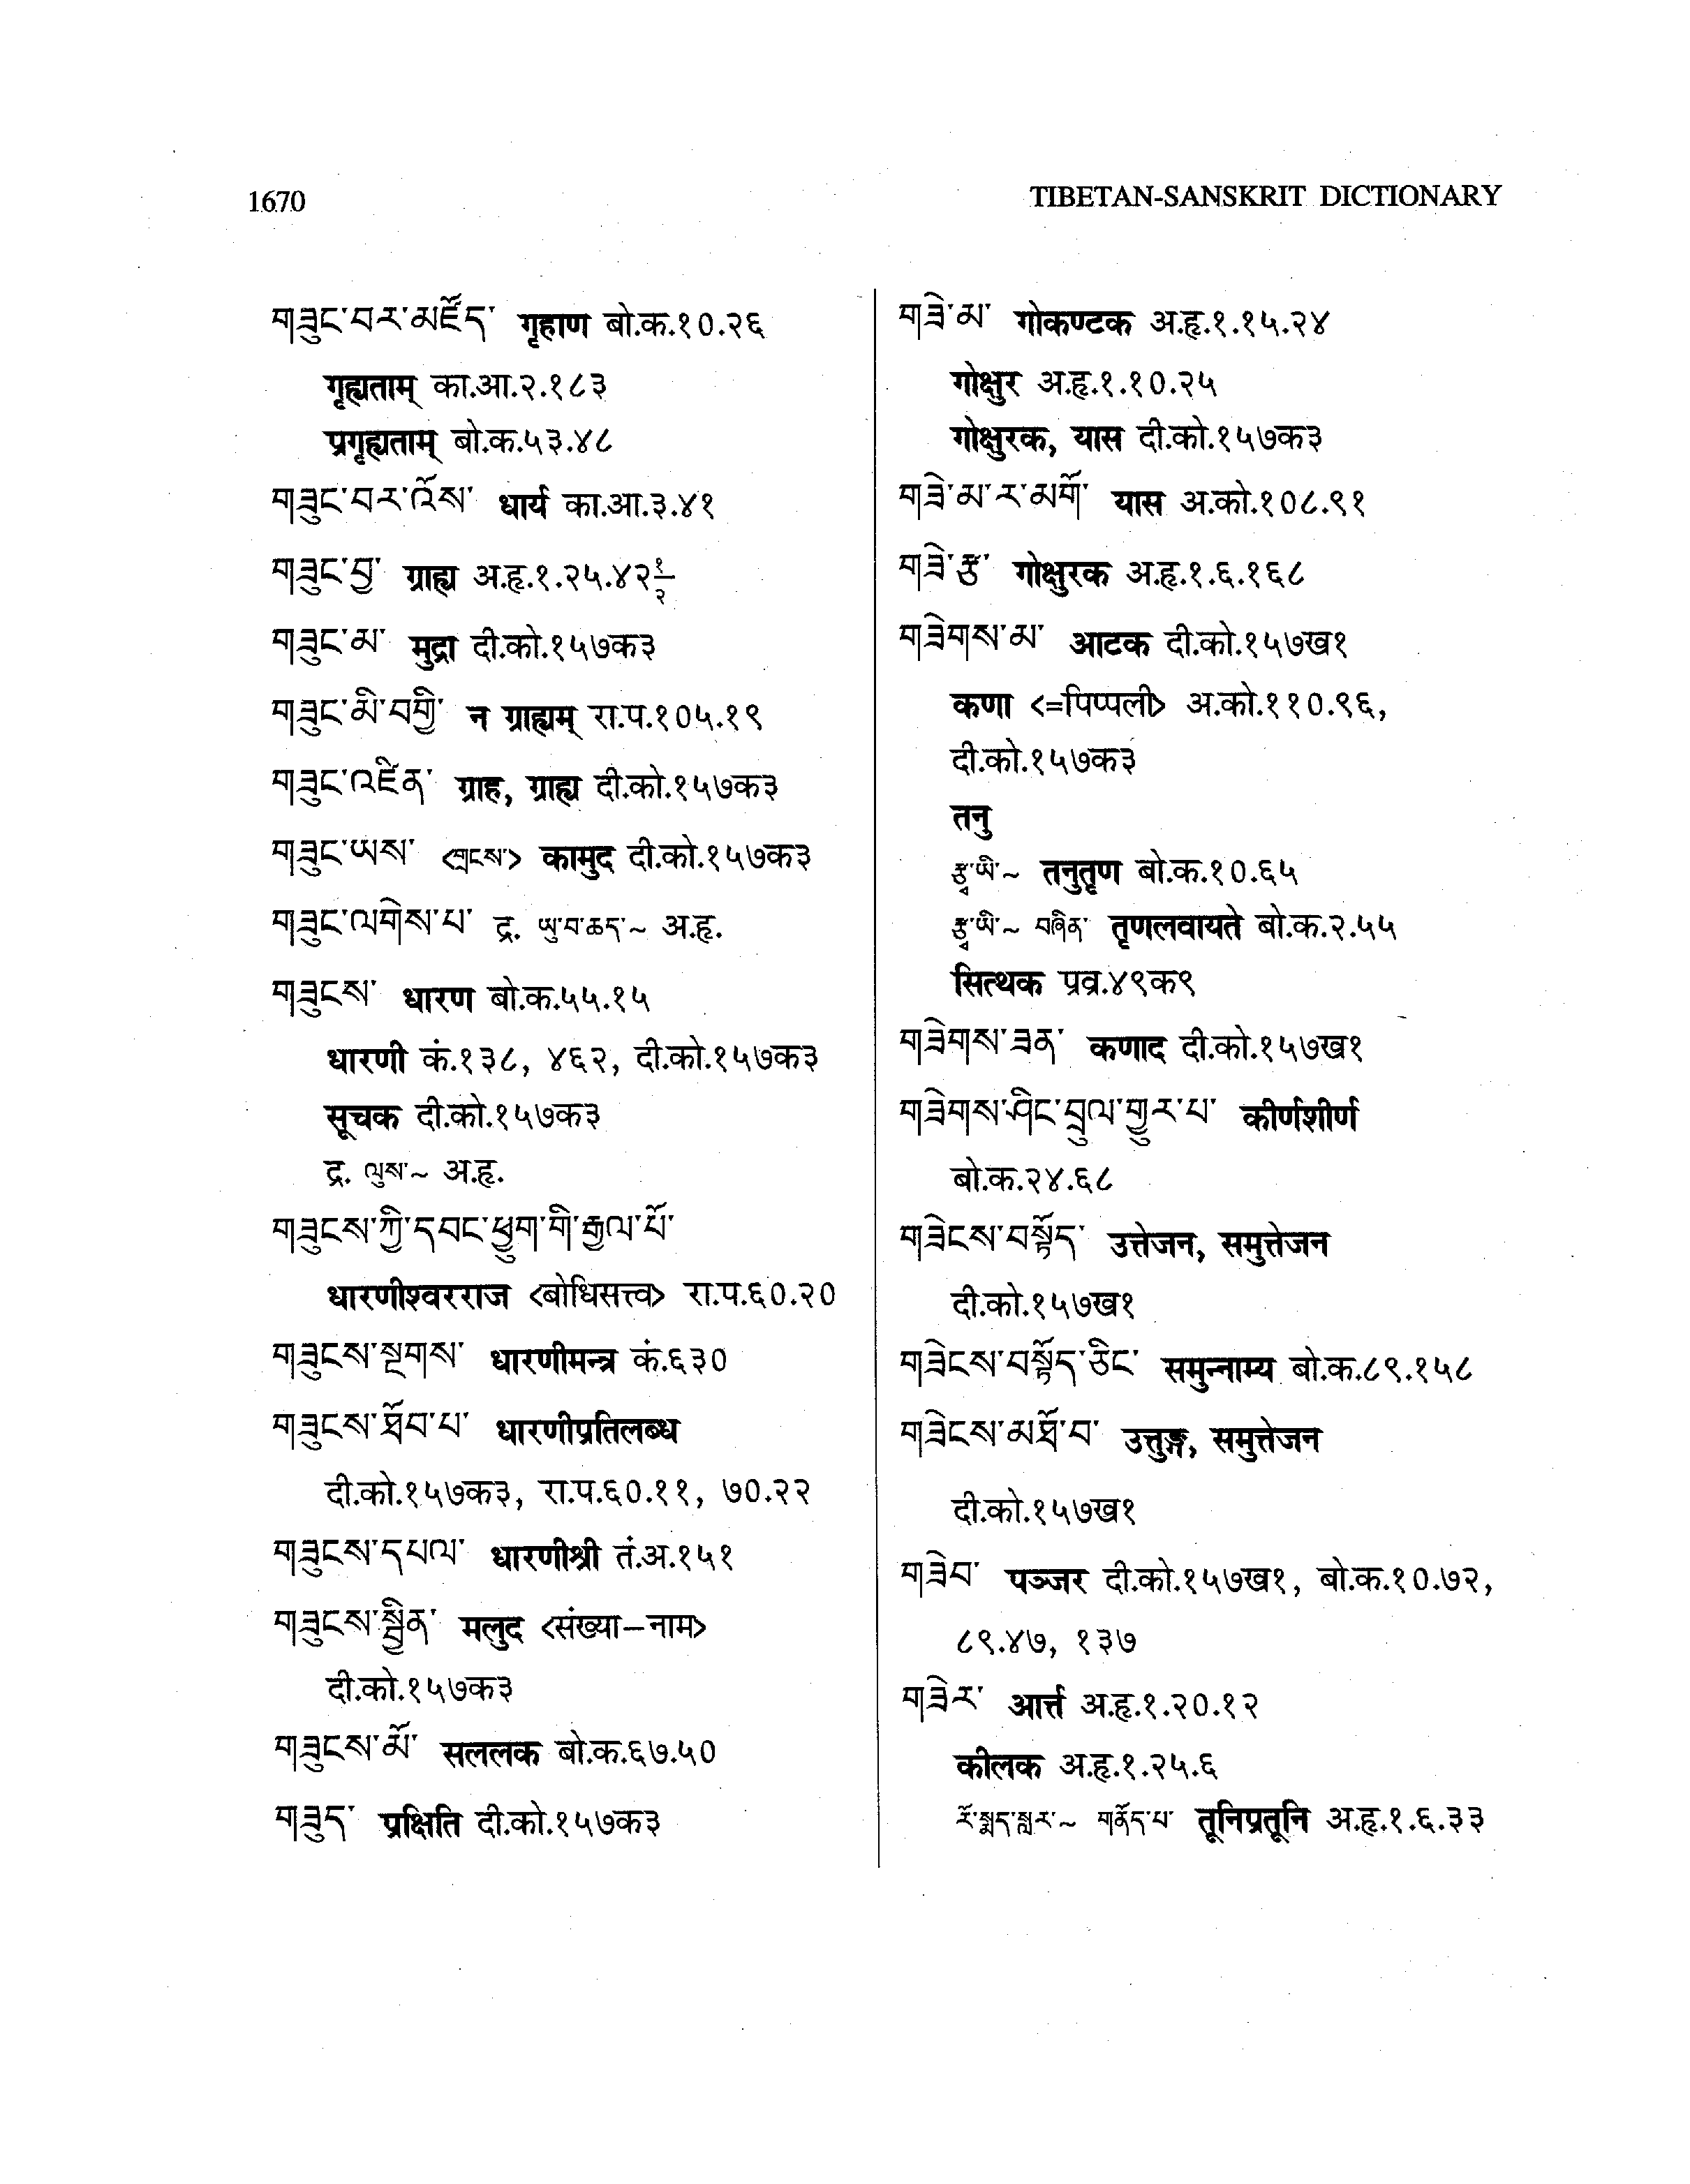 1670
TIBETAN-SANSKRIT DICTIONARY
གཟུང་བར་མཛོད་ गृहाण बो.क.१०.२६
गृह्यताम् का.आ.२.१८३
प्रगृह्यताम् बो.क.५३.४८
གཟུང་བར་འོས་ धार्य का.आ.३.४१
གཟུང་བྱ་ ग्राह्य अ.हृ.१.२५.४२१/२
གཟུང་མ་ मुद्रा दी.को.१५७क३
གཟུང་མི་བགྱི་ न ग्राह्यम् रा.प.१०५.१९
གཟུང་འཛིན་ ग्राह, ग्राह्य दी.को.१५७क३
གཟུང་ཡས་ <གྲངས་> कामुद दी.को.१५७क३
གཟུང་ལགེས་པ་ द्र. ཡུ་བ་ཆད་~ अ.हृ.
གཟུངས་ धारण बो.क.५५.१५
धारणी कं.१३८, ४६२, दी.को.१५७क३
सूचक दी.को.१५७क३
द्र. ལུས་~ अ.हृ.
གཟུངས་ཀྱི་དབང་ཕྱུག་གི་རྒྱལ་པོ་
धारणीश्वरराज <बोधिसत्त्व> रा.प.६०.२०
གཟུངས་སྔགས་ धारणीमन्त्र कं.६३०
གཟུངས་ཐོབ་པ་ धारणीप्रतिलब्ध
दी.को.१५७क३, रा.प.६०.११, ७०.२२
གཟུངས་དཔལ་ धारणीश्री तं.अ.१५१
གཟུངས་སྦྱིན་ मलुद <संख्या–नाम>
दी.को.१५७क३
གཟུངས་མོ་ सललक बो.क.६७.५०
གཟུད་ प्रक्षिति दी.को.१५७क३
གཟེ་མ་ गोकण्टक अ.हृ.१.१५.२४
गोक्षुर अ.हृ.१.१०.२५
गोक्षुरक, यास दी.को.१५७क३
གཟེ་མ་ར་མགོ་ यास अ.को.१०८.९१
གཟེ་རྩ་ गोक्षुरक अ.हृ.१.६.१६८
གཟེགས་མ་ आटक दी.को.१५७ख१
कणा <=पिप्पली> अ.को.११०.९६,
दी.को.१५७क३
तनु
རྩྭ་ཡི་~ तनुतृण बो.क.१०.६५
རྩྭ་ཡི་~ བཞིན་ तृणलवायते बो.क.२.५५
सित्थक प्रव्र.४९क९
གཟེགས་ཟན་ कणाद दी.को.१५७ख१
གཟེགས་ཤིང་བྲུལ་གྱུར་པ་ कीर्णशीर्ण
बो.क.२४.६८
གཟེངས་བསྟོད་ उत्तेजन, समुत्तेजन
दी.को.१५७ख१
གཟེངས་བསྟོད་ཅིང་ समुन्नाम्य बो.क.८९.१५८
གཟེངས་མཐོ་བ་ उत्तुङ्ग, समुत्तेजन
दी.को.१५७ख१
གཟེབ་ पञ्जर दी.को.१५७ख१, बो.क.१०.७२,
८९.४७, १३७
གཟེར་ आर्त्त अ.हृ.१.२०.१२
कीलक अ.हृ.१.२५.६
རོ་སྨད་སླར་~ གནོད་པ་ तूनिप्रतूनि अ.हृ.१.६.३३